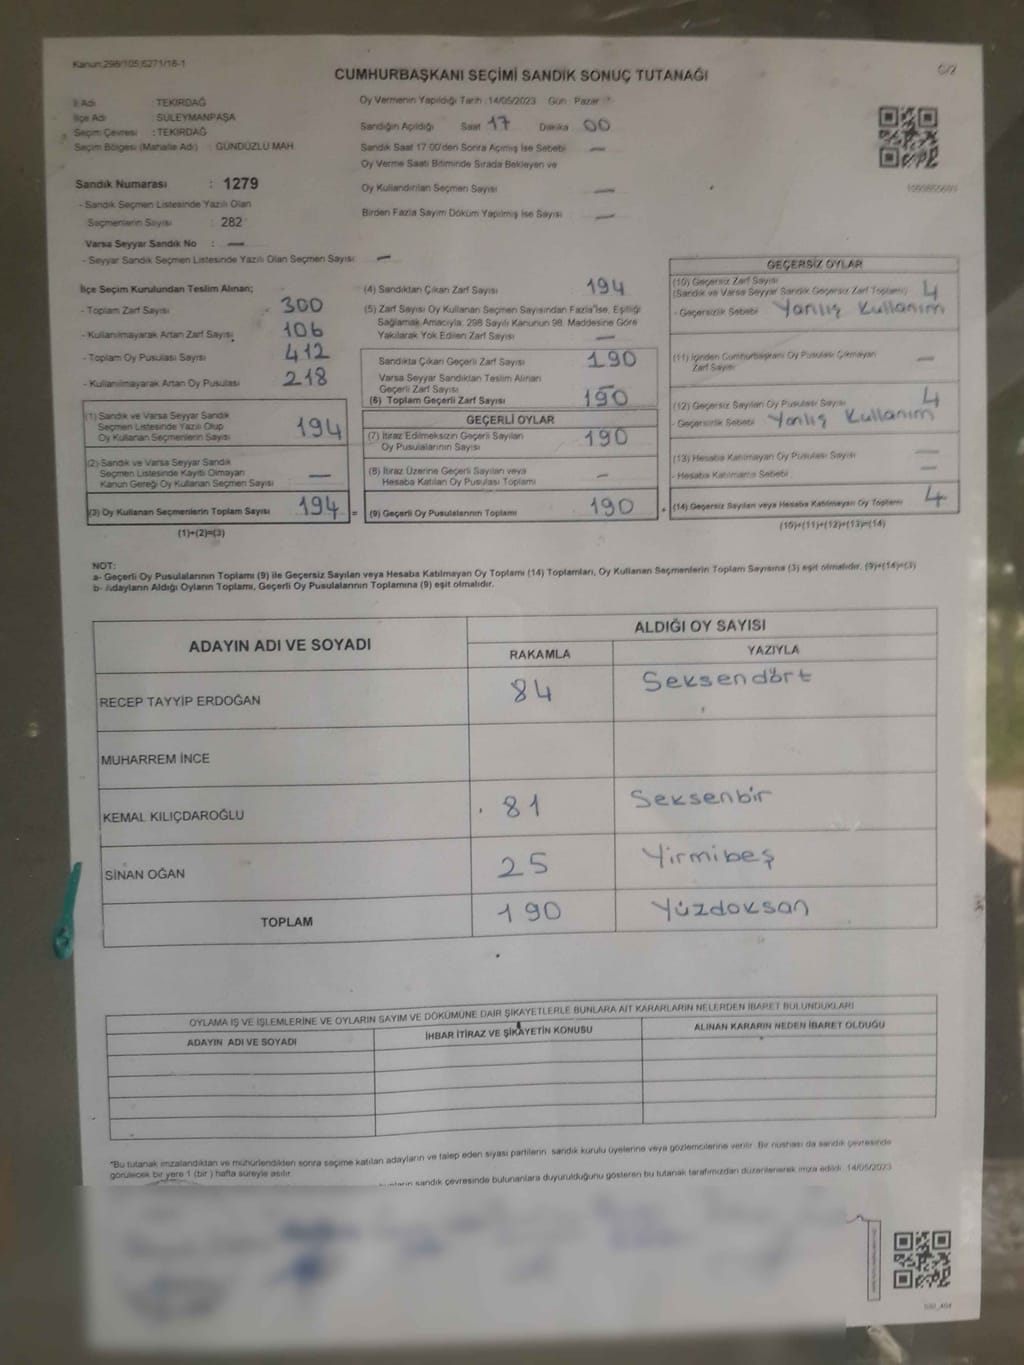 Kanun:298/105,6271/18-1
C/2
CUMHURBAŞKANI SEÇİMİ SANDIK SONUÇ TUTANAĞI
İl Adı TEKİRDAĞ
İlçe Adı SÜLEYMANPAŞA
Seçim Çevresi : TEKİRDAĞ
Seçim Bölgesi (Mahalle Adı) : GÜNDÜZLÜ MAH
Sandık Numarası : 1279
- Sandık Seçmen Listesinde Yazılı Olan
Seçmenlerin Sayısı : 282
Varsa Seyyar Sandık No : —
- Seyyar Sandık Seçmen Listesinde Yazılı Olan Seçmen Sayısı —
Oy Vermenin Yapıldığı Tarih : 14/05/2023 Gün : Pazar
Sandığın Açıldığı Saat 17 Dakika 00
Sandık Saat 17.00'den Sonra Açılmış İse Sebebi —
Oy Verme Saati Bitiminde Sırada Bekleyen ve
Oy Kullandırılan Seçmen Sayısı —
Birden Fazla Sayım Döküm Yapılmış İse Sayısı —
İlçe Seçim Kurulundan Teslim Alınan;
- Toplam Zarf Sayısı 300
- Kullanılmayarak Artan Zarf Sayısı 106
- Toplam Oy Pusulası Sayısı 412
- Kullanılmayarak Artan Oy Pusulası 218
(1) Sandık ve Varsa Seyyar Sandık
Seçmen Listesinde Yazılı Olup
Oy Kullanan Seçmenlerin Sayısı 194
(2) Sandık ve Varsa Seyyar Sandık
Seçmen Listesinde Kayıtlı Olmayan
Kanun Gereği Oy Kullanan Seçmen Sayısı —
(3) Oy Kullanan Seçmenlerin Toplam Sayısı 194 =
(1)+(2)=(3)
(4) Sandıktan Çıkan Zarf Sayısı 194
(5) Zarf Sayısı Oy Kullanan Seçmen Sayısından Fazla İse, Eşitliği
Sağlamak Amacıyla, 298 Sayılı Kanunun 98. Maddesine Göre
Yakılarak Yok Edilen Zarf Sayısı —
Sandıkta Çıkan Geçerli Zarf Sayısı 190
Varsa Seyyar Sandıktan Teslim Alınan
Geçerli Zarf Sayısı
(6) Toplam Geçerli Zarf Sayısı 190
GEÇERLİ OYLAR
(7) İtiraz Edilmeksizin Geçerli Sayılan
Oy Pusulalarının Sayısı 190
(8) İtiraz Üzerine Geçerli Sayılan veya
Hesaba Katılan Oy Pusulası Toplamı —
(9) Geçerli Oy Pusulalarının Toplamı 190 +
GEÇERSİZ OYLAR
(10) Geçersiz Zarf Sayısı
(Sandık ve Varsa Seyyar Sandık Geçersiz Zarf Toplamı) 4
- Geçersizlik Sebebi Yanlış Kullanım
(11) İçinden Cumhurbaşkanı Oy Pusulası Çıkmayan
Zarf Sayısı —
(12) Geçersiz Sayılan Oy Pusulası Sayısı 4
- Geçersizlik Sebebi Yanlış Kullanım
(13) Hesaba Katılmayan Oy Pusulası Sayısı —
- Hesaba Katılmama Sebebi —
(14) Geçersiz Sayılan veya Hesaba Katılmayan Oy Toplamı 4
(10)+(11)+(12)+(13)=(14)
NOT:
a- Geçerli Oy Pusulalarının Toplamı (9) ile Geçersiz Sayılan veya Hesaba Katılmayan Oy Toplamı (14) Toplamları, Oy Kullanan Seçmenlerin Toplam Sayısına (3) eşit olmalıdır. (9)+(14)=(3)
b- Adayların Aldığı Oyların Toplamı, Geçerli Oy Pusulalarının Toplamına (9) eşit olmalıdır.
ADAYIN ADI VE SOYADI
ALDIĞI OY SAYISI
RAKAMLA YAZIYLA
RECEP TAYYİP ERDOĞAN 84 Seksendört
MUHARREM İNCE
KEMAL KILIÇDAROĞLU 81 Seksenbir
SİNAN OĞAN 25 Yirmibeş
TOPLAM 190 Yüzdoksan
OYLAMA İŞ VE İŞLEMLERİNE VE OYLARIN SAYIM VE DÖKÜMÜNE DAİR ŞİKAYETLERLE BUNLARA AİT KARARLARIN NELERDEN İBARET BULUNDUKLARI
ADAYIN ADI VE SOYADI İHBAR İTİRAZ VE ŞİKAYETİN KONUSU ALINAN KARARIN NEDEN İBARET OLDUĞU
"Bu tutanak imzalandıktan ve mühürlendikten sonra seçime katılan adayların ve talep eden siyasi partilerin sandık kurulu üyelerine veya gözlemcilerine verilir. Bir nüshası da sandık çevresinde
görülecek bir yere 1 (bir) hafta süreyle asılır.
sandık çevresinde bulunanlara duyurulduğunu gösteren bu tutanak tarafımızdan düzenlenerek imza edildi. 14/05/2023